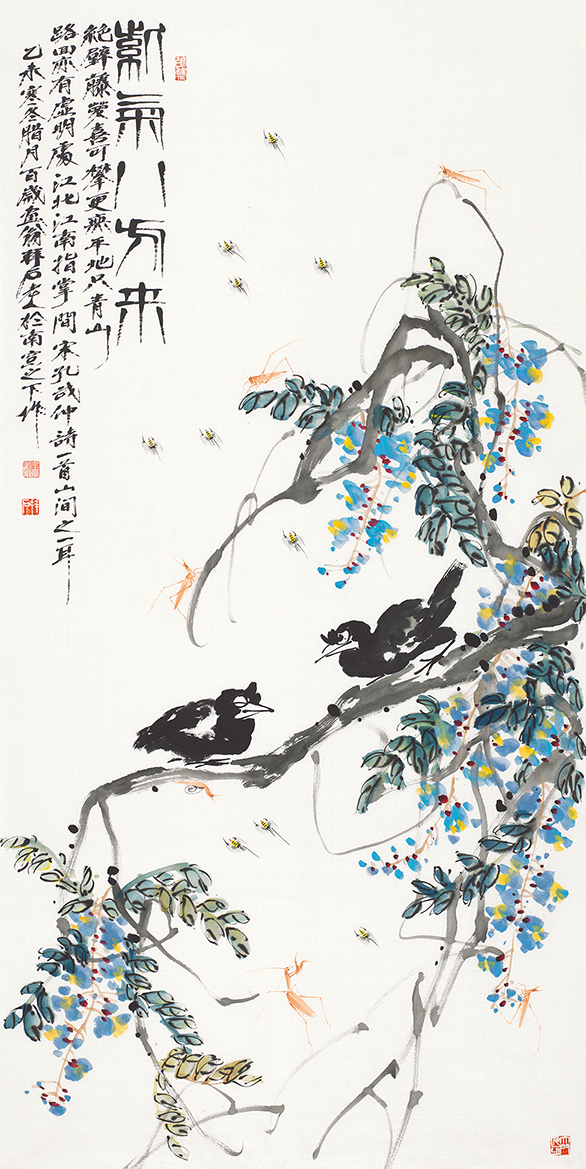 紫氣八方来
絕壁藤蔓喜可攀更無平地只青山
路回亦有虛明處江北江南指掌間宋孔武仲詩一首山間之一
乙未寒冬腊月百歲画翁拜石老人於南京之下作